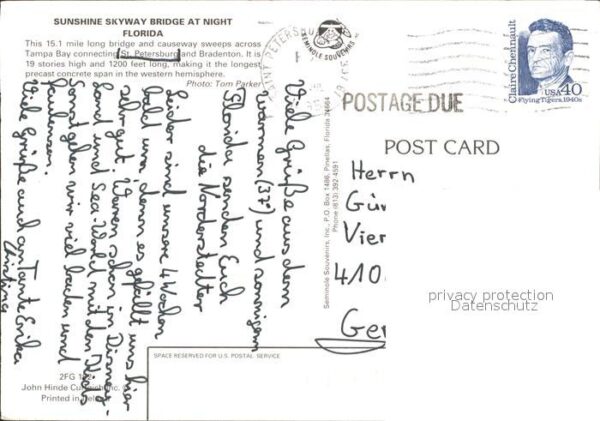 SUNSHINE SKYWAY BRIDGE AT NIGHT
FLORIDA
This 15.1 mile long bridge and causeway sweeps across
Tampa Bay connecting St. Petersburg and Bradenton. It is
19 stories high and 1200 feet long, making it the longest
precast concrete span in the western hemisphere.
Photo: Tom Parker
Viele Grüße aus dem
warmen (37°) und sonnigen
Florida senden Euch
die Norderstedter
Leider sind unsere 4 Wochen
bald um, denn es gefällt uns hier
sehr gut. Waren schon in Disney-
Land und Sea-World mit den Kids
Sonst gehen wir viel baden und
faulenzen.
Viele Grüße auch an Tante Erika
Christina
2FG 1
John Hinde Curteich, Inc.
Printed in
Seminole Souvenirs, Inc. P.O. Box 1486, Pinellas, Florida 34664
Phone (813) 392-4591
SEMINOLE SOUVENIRS
ST PETERSBURG
POSTAGE DUE
Claire Chennault
USA 40
Flying Tigers, 1940s
POST CARD
Herrn
Gü
Vier
410
Ge
privacy protection
Datenschutz
SPACE RESERVED FOR U.S. POSTAL SERVICE